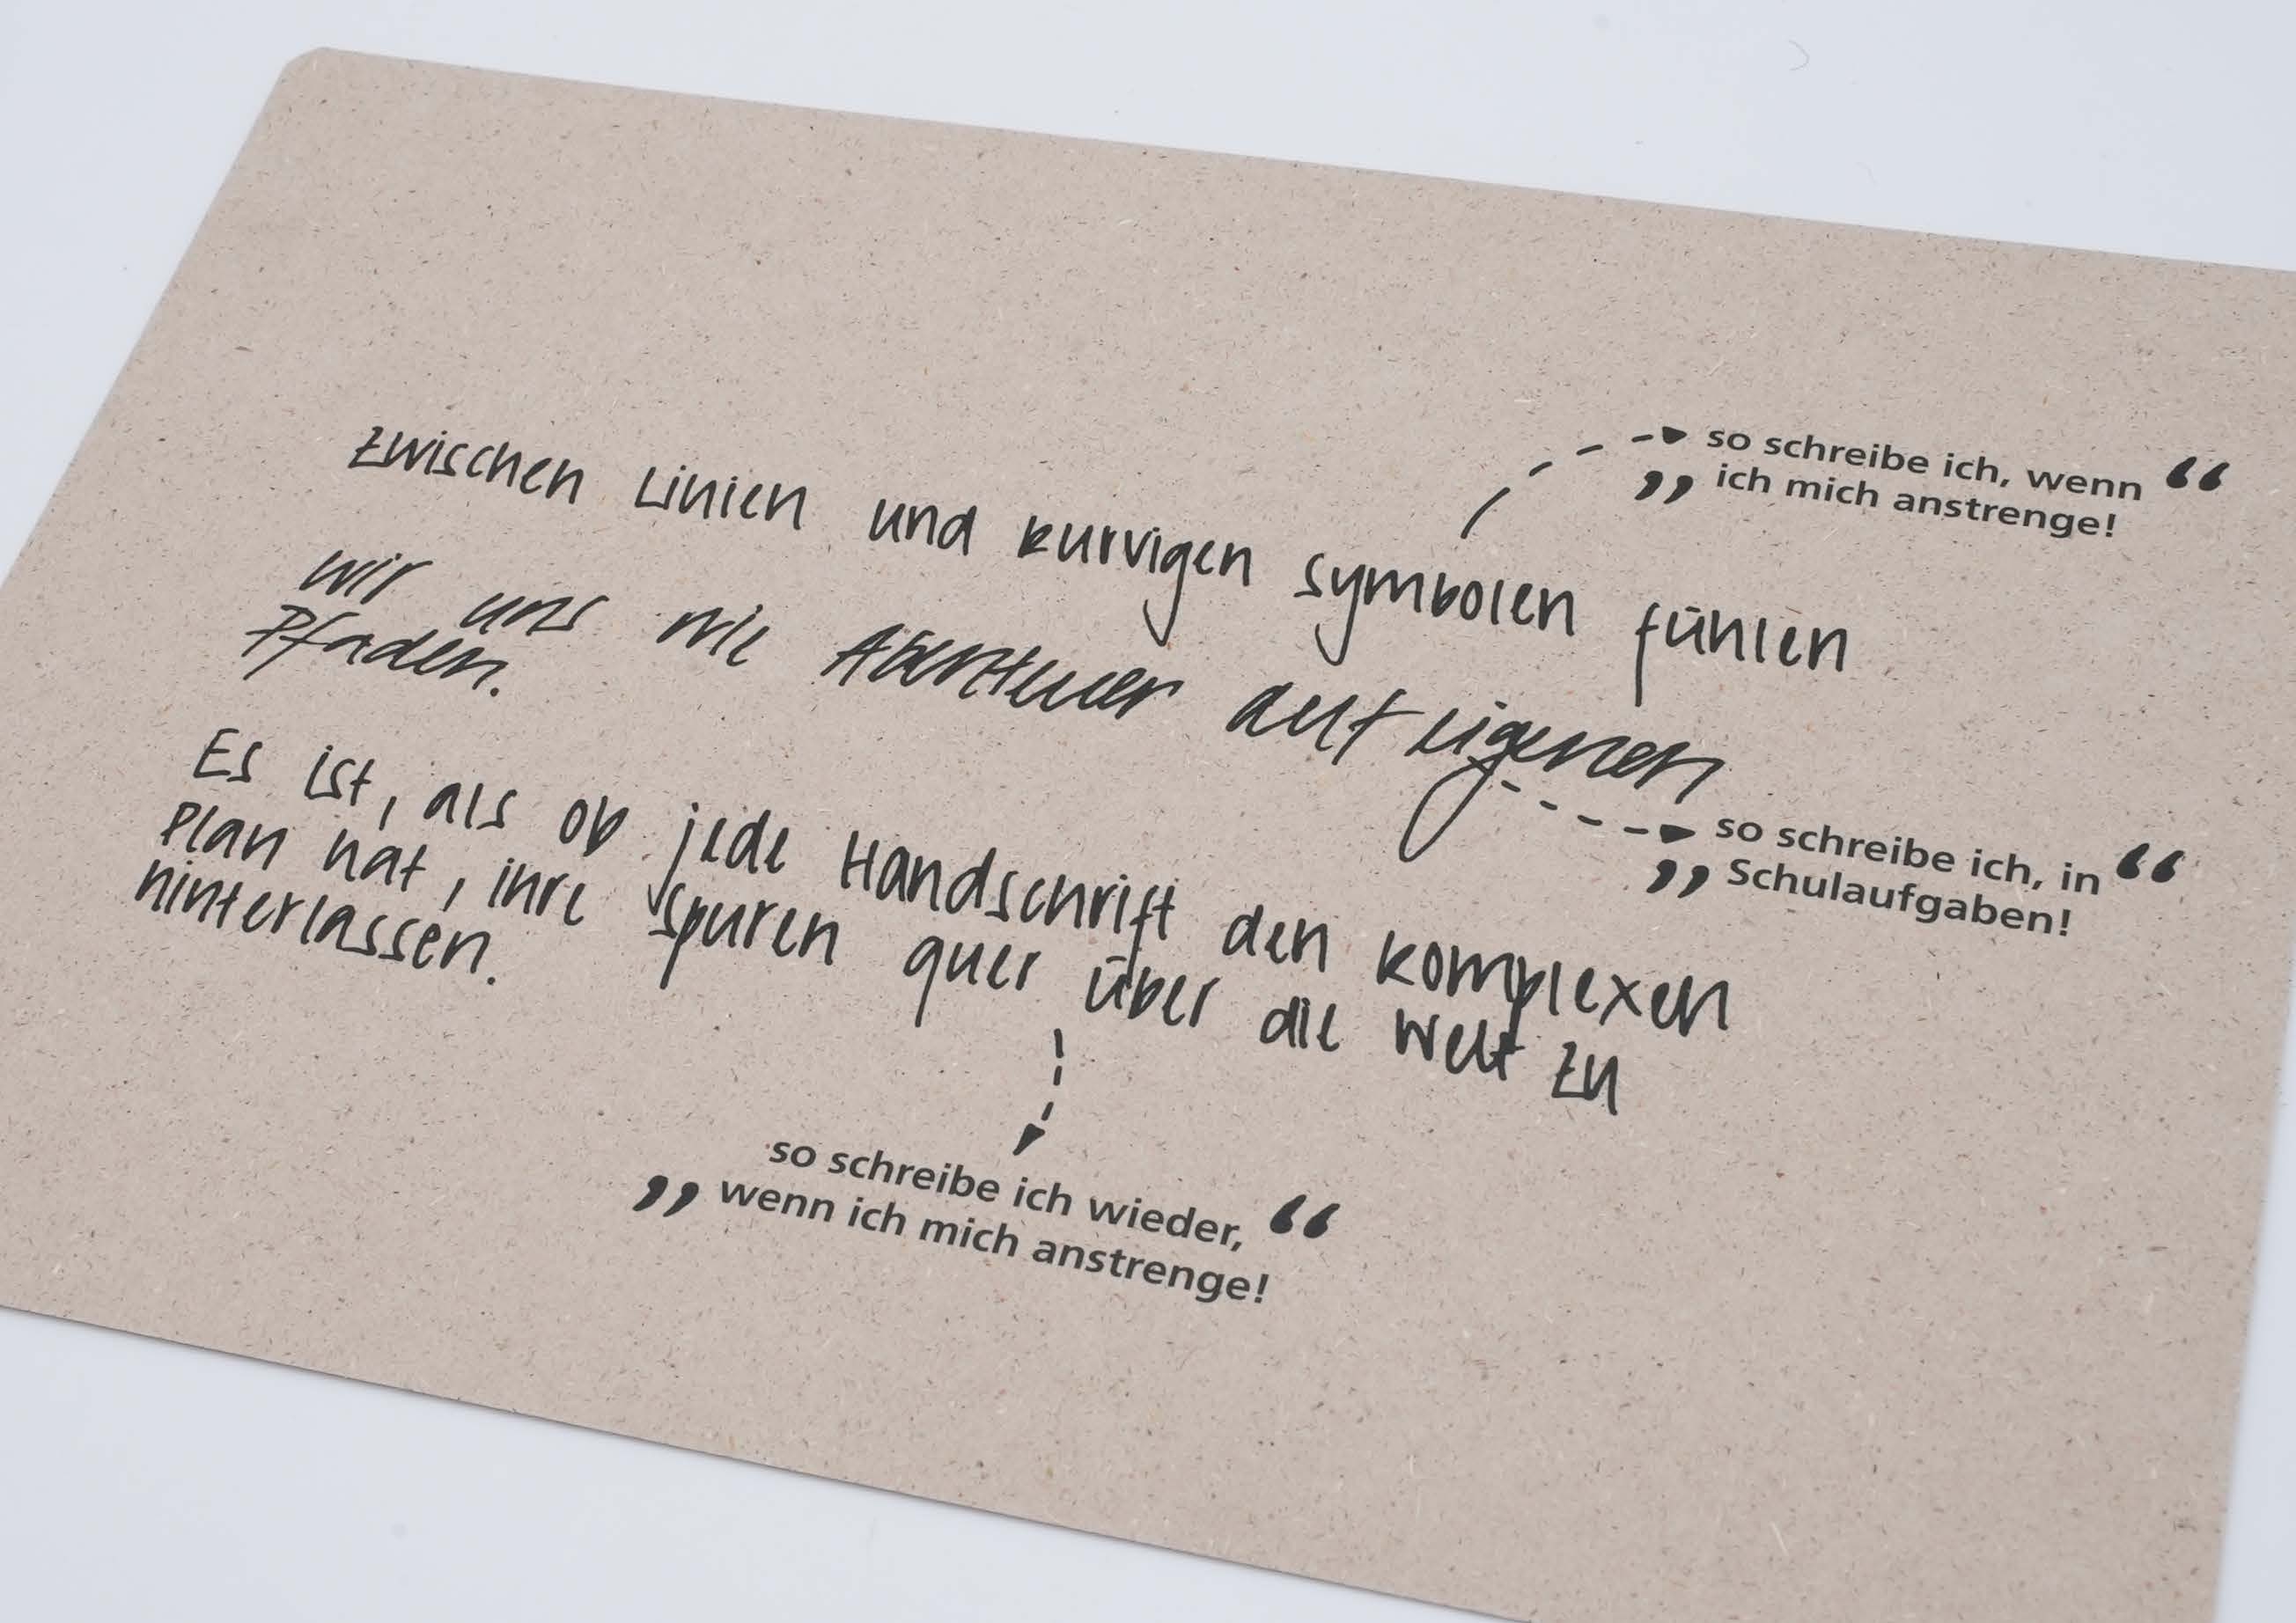 zwischen Linien und kurvigen symbolen fühlen
„so schreibe ich, wenn
ich mich anstrenge!“
wir uns wie Abenteuer auf eigenen
Pfaden.
„so schreibe ich, in
Schulaufgaben!“
Es ist, als ob jede Handschrift den komplexen
Plan hat, ihre Spuren quer über die Welt zu
hinterlassen.
„so schreibe ich wieder,
wenn ich mich anstrenge!“